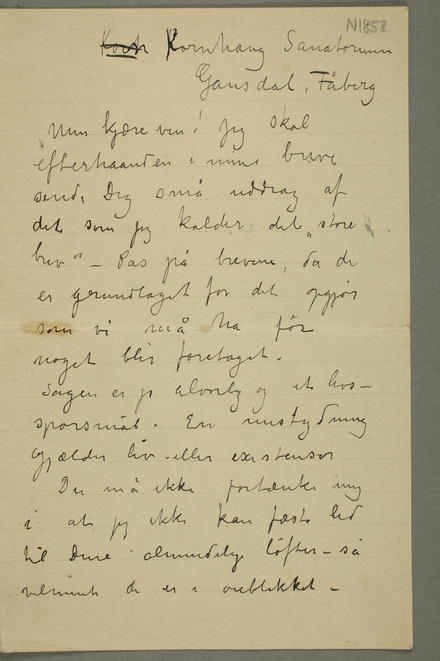 N1858
Kornhaug Sanatorium
Gausdal, Fåberg
Min kjære ven! Jeg skal
efterhaanden i mine breve
sende Dig små uddrag af
det som jeg kalder det „store
brev“ – Pas på brevene, da de
er grundlaget for det opgjør
som vi må ha før
noget blir foretaget.
Sagen er jo alvorlig og et livs–
spørsmål. En mistydning
gjælder liv eller existenser
Du må ikke fortænke mig
i at jeg ikke kan fæste lid
til Dine almindelige løfter – så
velmente de er i øieblikket –